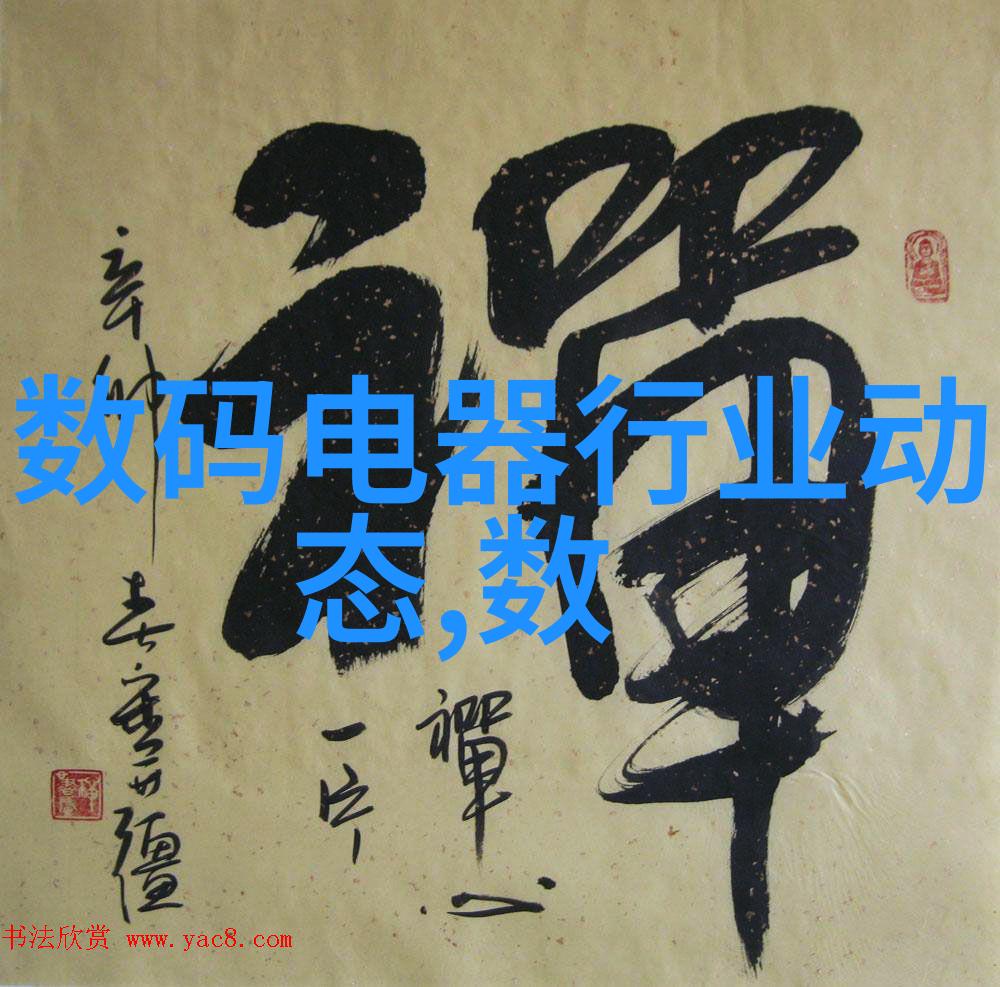 禪
数码电器行业动
态,数
禪心
一片
辛卯
春寒冊疆
书法欣赏 www.yac8.com